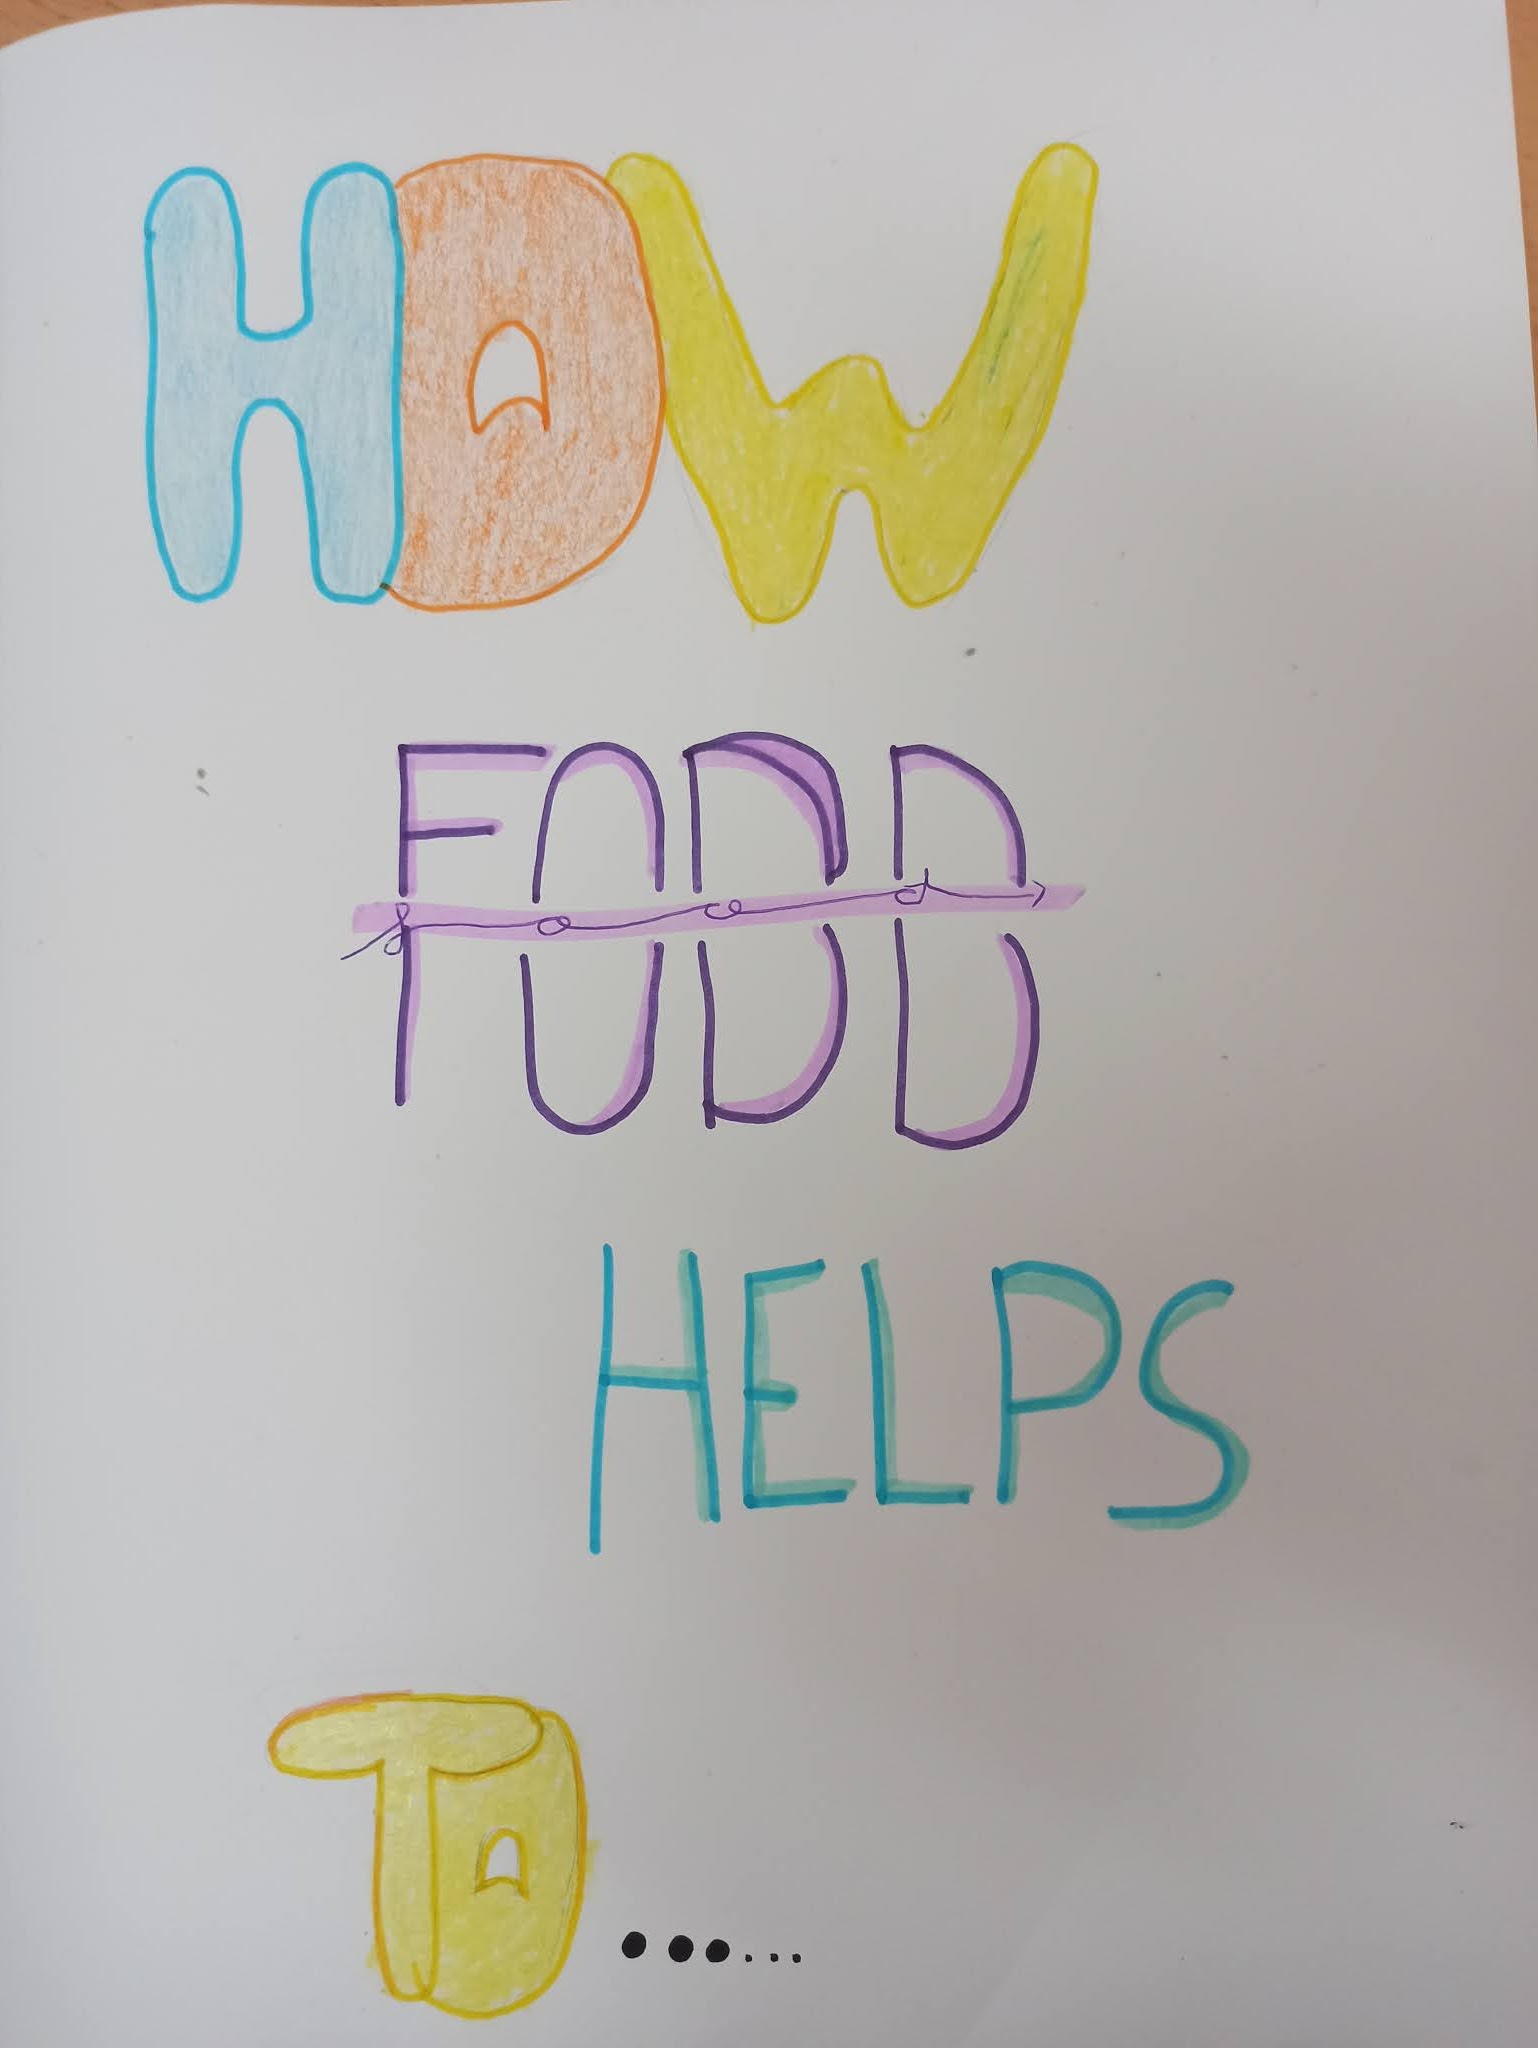 HOW
FODD
food
HELPS
TO......